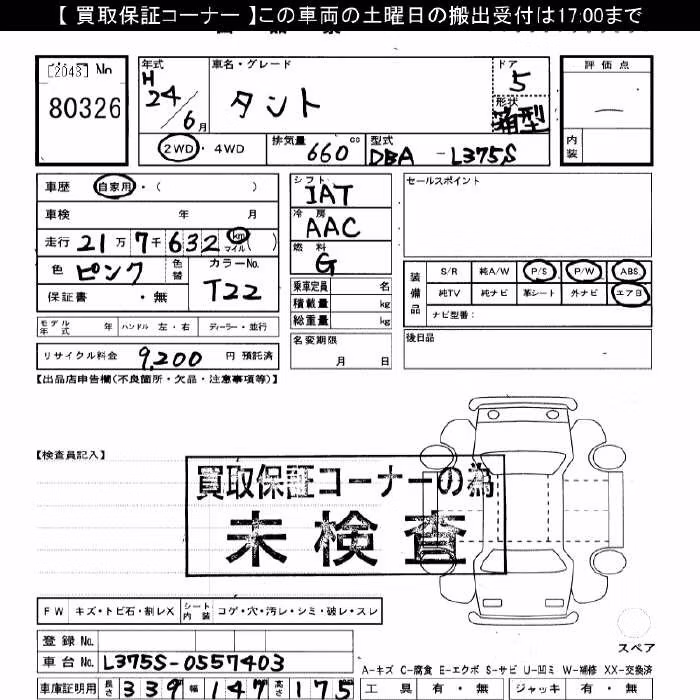 【 買取保証コーナー 】この車両の土曜日の搬出受付は17:00まで
[2043] No
80326
年式 H 24 / 6月
車名・グレード
タント
ドア 5
形状 箱型
評価点
内装
2WD ・ 4WD
排気量 660 cc
型式 DBA - L375S
車歴 自家用・( )
車検 年 月
走行 21万7千632 km マイル ( )
色 ピンク 色替
カラーNo. T22
保証書 ・ 無
シフト IAT
冷房 AAC
燃料 G
乗車定員 名
積載量 kg
総重量 kg
セールスポイント
装備品
S/R 純A/W P/S P/W ABS
純TV 純ナビ 革シート 外ナビ エアB
ナビ型番:
モデル年式 年 ハンドル 左・右 ディーラー・並行
リサイクル料金 9,200 円 預託済
名変期限 月 日
後日品
【出品店申告欄(不良箇所・欠品・注意事項等)】
【検査員記入】
買取保証コーナーの為
未検査
FW キズ・トビ石・割レX シート内装 コゲ・穴・汚レ・シミ・破レ・スレ
スペア
登録 No.
車台 No. L375S-0557403
A-キズ C-腐食 E-エクボ S-サビ U-凹ミ W-補修 XX-交換済
車庫証明用 長さ 339 幅 147 高さ 175
工具 有・無 ジャッキ 有・無